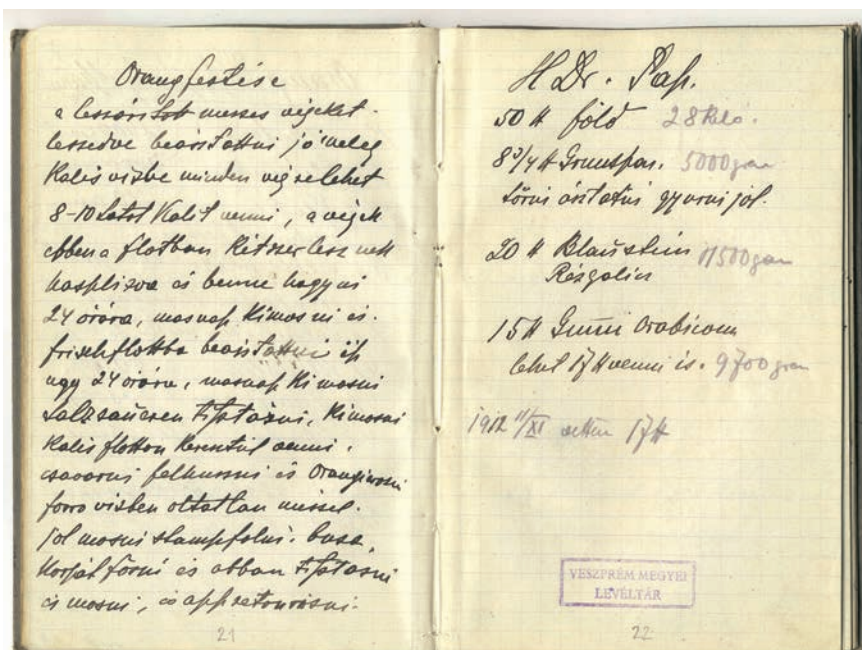 Orangfestése
a lessárított messes végeket
lesedve beáristattni jó meleg
Kalis vizbe minden végre lehet
8-10 Latot Kalit venni, a végek
ebben a flotban kétszer lesznek
hasplizva és benne hagyni
24 órára, masnap Kimosni és.
frisch flottba beáristattni ép
ugy 24 órára, masnap Kimosni
Salzsaueren tisztázni, Kimosni
Kalis flotton Keresztül venni,
csavarni felhuzni és Orangirozni
forro vizben oltatlan mésszel.
jol mosni stampfolni. busa
Korpát főzni és abban tisztázni
és mosni, és appretourozni.
21
H Dr. Pap.
50 ℔ föld 28 kiló.
8 3/4 ℔ Grunspan. 5000 gram
törni áztatni gyurni jol.
20 ℔ Blaustein 11500 gram
Rézgalic
15 ℔ Gummi Arabicom
lehet 17 ℔ venni is. 9700 gram
1912 11/XI vettem 17 ℔
VESZPRÉM MEGYEI
LEVÉLTÁR
22